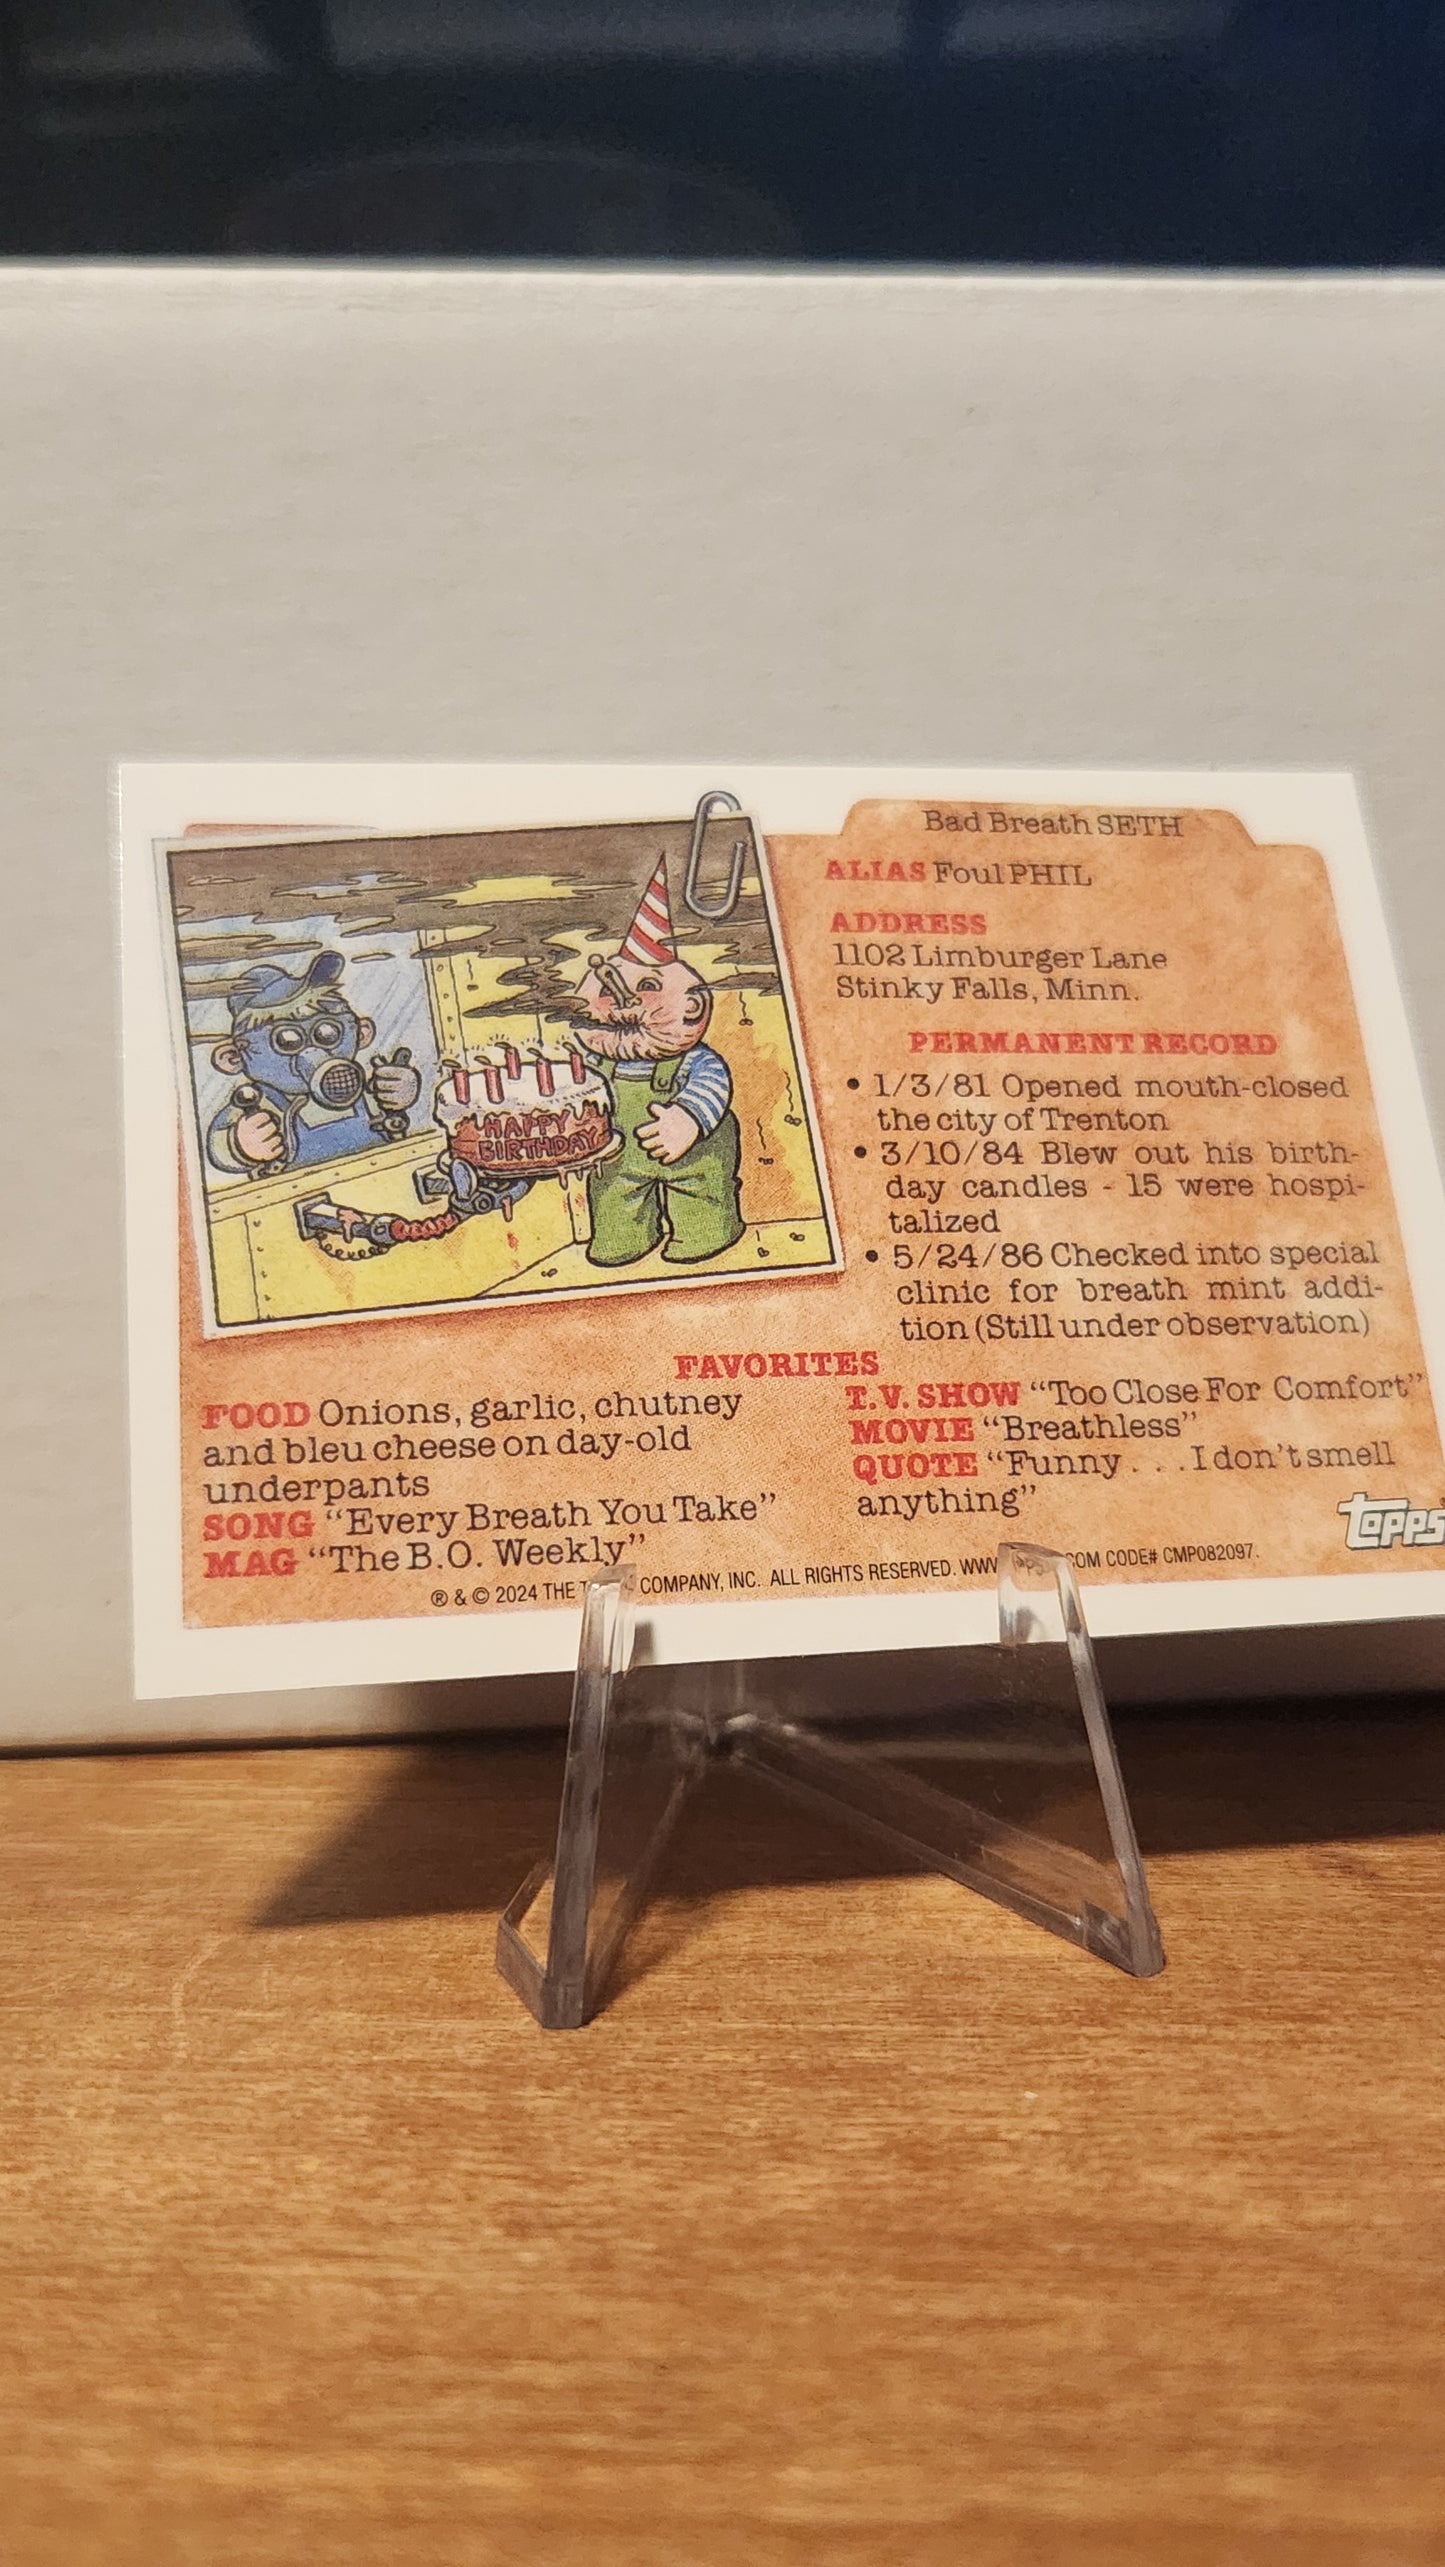 Bad Breath SETH
ALIAS Foul PHIL
ADDRESS
1102 Limburger Lane
Stinky Falls, Minn.
PERMANENT RECORD
• 1/3/81 Opened mouth-closed
the city of Trenton
• 3/10/84 Blew out his birth-
day candles - 15 were hospi-
talized
• 5/24/86 Checked into special
clinic for breath mint addi-
tion (Still under observation)
HAPPY
BIRTHDAY
FAVORITES
FOOD Onions, garlic, chutney
and bleu cheese on day-old
underpants
SONG "Every Breath You Take"
MAG "The B.O. Weekly"
T.V. SHOW "Too Close For Comfort"
MOVIE "Breathless"
QUOTE "Funny . . . I don't smell
anything"
topps
® & © 2024 THE COMPANY, INC. ALL RIGHTS RESERVED. COM CODE# CMP082097.